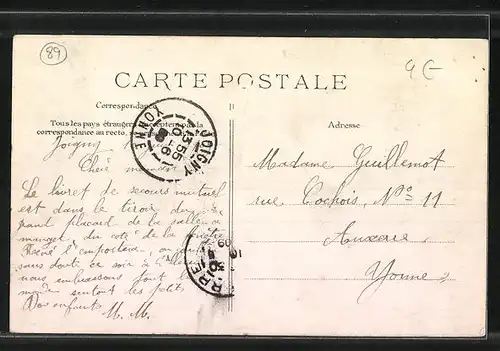 89
4 €
CARTE POSTALE
Correspondance
Tous les pays étrangers acceptent pas la
correspondance au recto,
Adresse
JOIGNY
13 55
10 -6
09
YONNE
Joigny
Chère
Le livret de secours mutuel
est dans le tiroir du
grand placard de la salle à
manger, du côté de la
l'emportera,
sans doute ce soir à
nous embrassons tout le
monde surtout les petits
Vos enfants
M. M.
Madame Guillemot
rue Cochois, No 11
Auxerre
Yonne